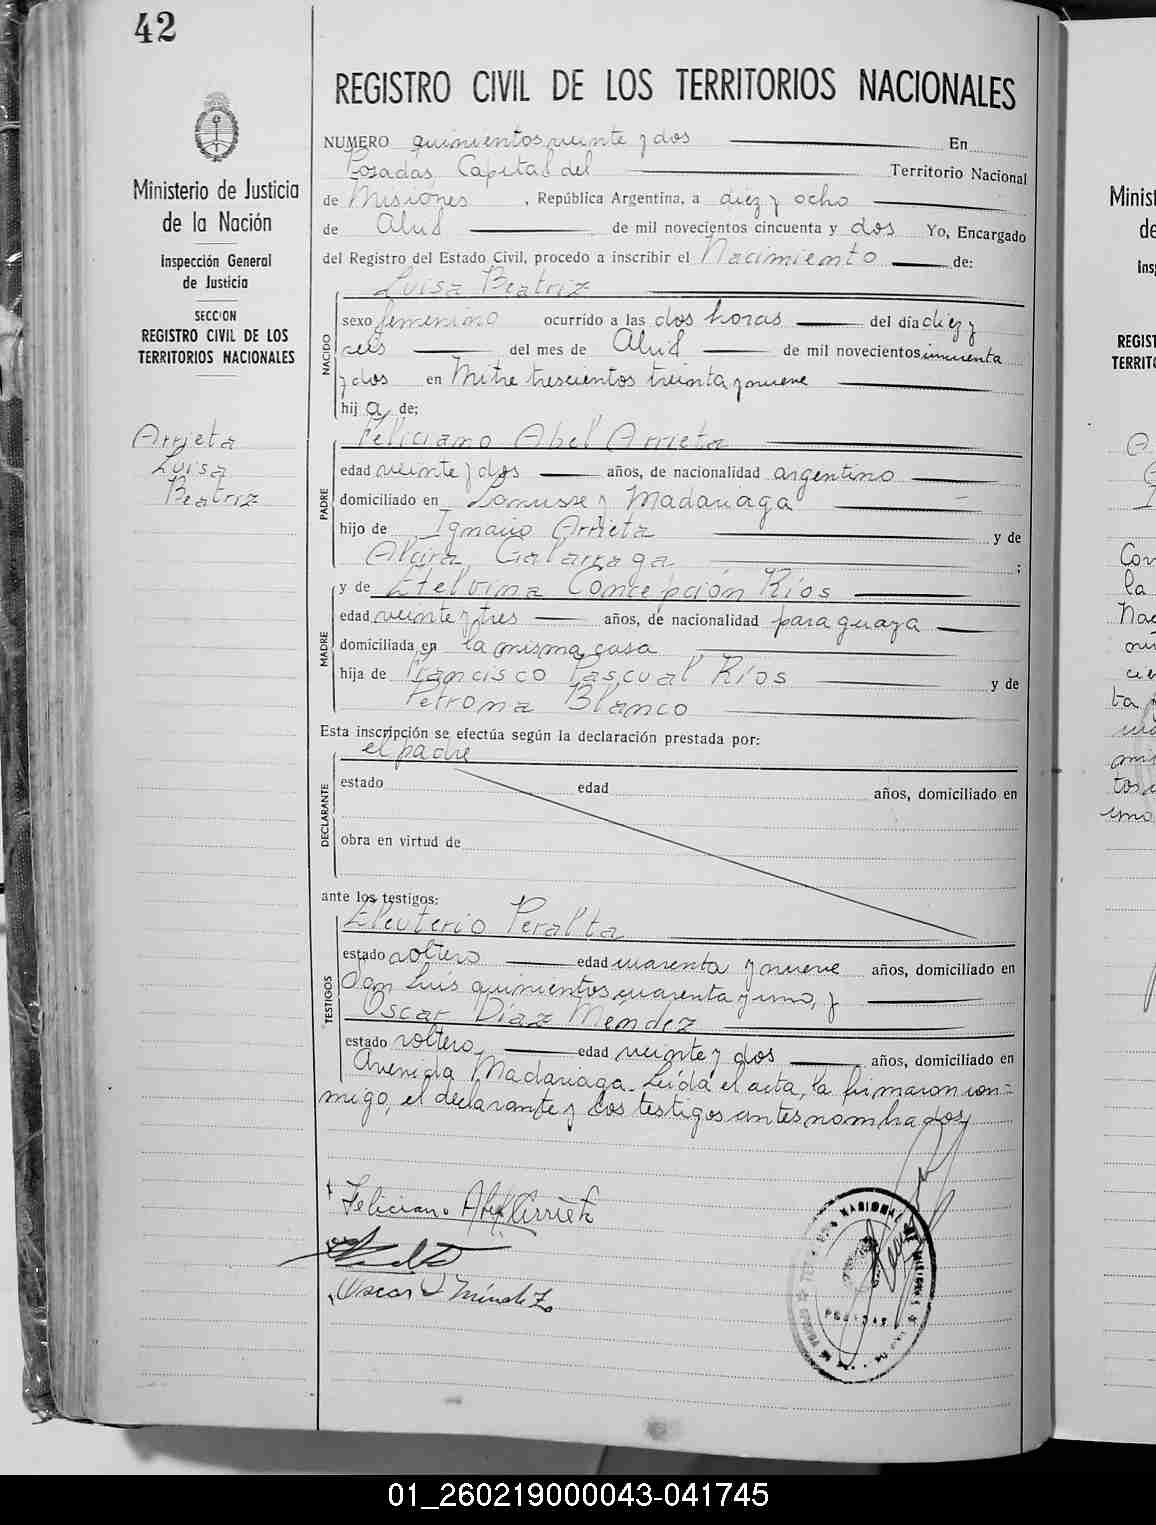 42
REGISTRO CIVIL DE LOS TERRITORIOS NACIONALES
Ministerio de Justicia
de la Nación
Inspección General
de Justicia
SECCION
REGISTRO CIVIL DE LOS
TERRITORIOS NACIONALES
Arrieta
Luisa
Beatriz
NUMERO quinientos veinte y dos En
Posadas, Capital del Territorio Nacional
de Misiones, República Argentina, a diez y ocho
de Abril de mil novecientos cincuenta y dos Yo, Encargado
del Registro del Estado Civil, procedo a inscribir el Nacimiento de:
Luisa Beatriz
NACIDO
sexo femenino ocurrido a las dos horas del día diez y
seis del mes de Abril de mil novecientos cincuenta
y dos en Mitre trescientos treinta y nueve
hij a de;
Feliciano Abel Arrieta
PADRE
edad veinte y dos años, de nacionalidad argentino
domiciliado en Lanusse y Madariaga
hijo de Ignacio Arrieta y de
Alcira Galarraga ;
y de Etelvina Concepción Ríos
MADRE
edad veinte y tres años, de nacionalidad paraguaya
domiciliada en la misma casa
hija de Francisco Pascual Ríos y de
Petrona Blanco
Esta inscripción se efectúa según la declaración prestada por:
el padre
DECLARANTE
estado edad años, domiciliado en
obra en virtud de
ante los testigos:
Eleuterio Peralta
TESTIGOS
estado soltero edad cuarenta y nueve años, domiciliado en
San Luis quinientos cuarenta y uno, y
Oscar Díaz Méndez
estado soltero, edad veinte y dos años, domiciliado en
Avenida Madariaga. Leída el acta, la firmaron con=
migo, el declarante y los testigos antes nombrados
Feliciano Abel Arrieta
Oscar D Méndez
POSADAS
Minist
de
Ins
REGIST
TERRITO
Con
la
Nac
01_260219000043-041745